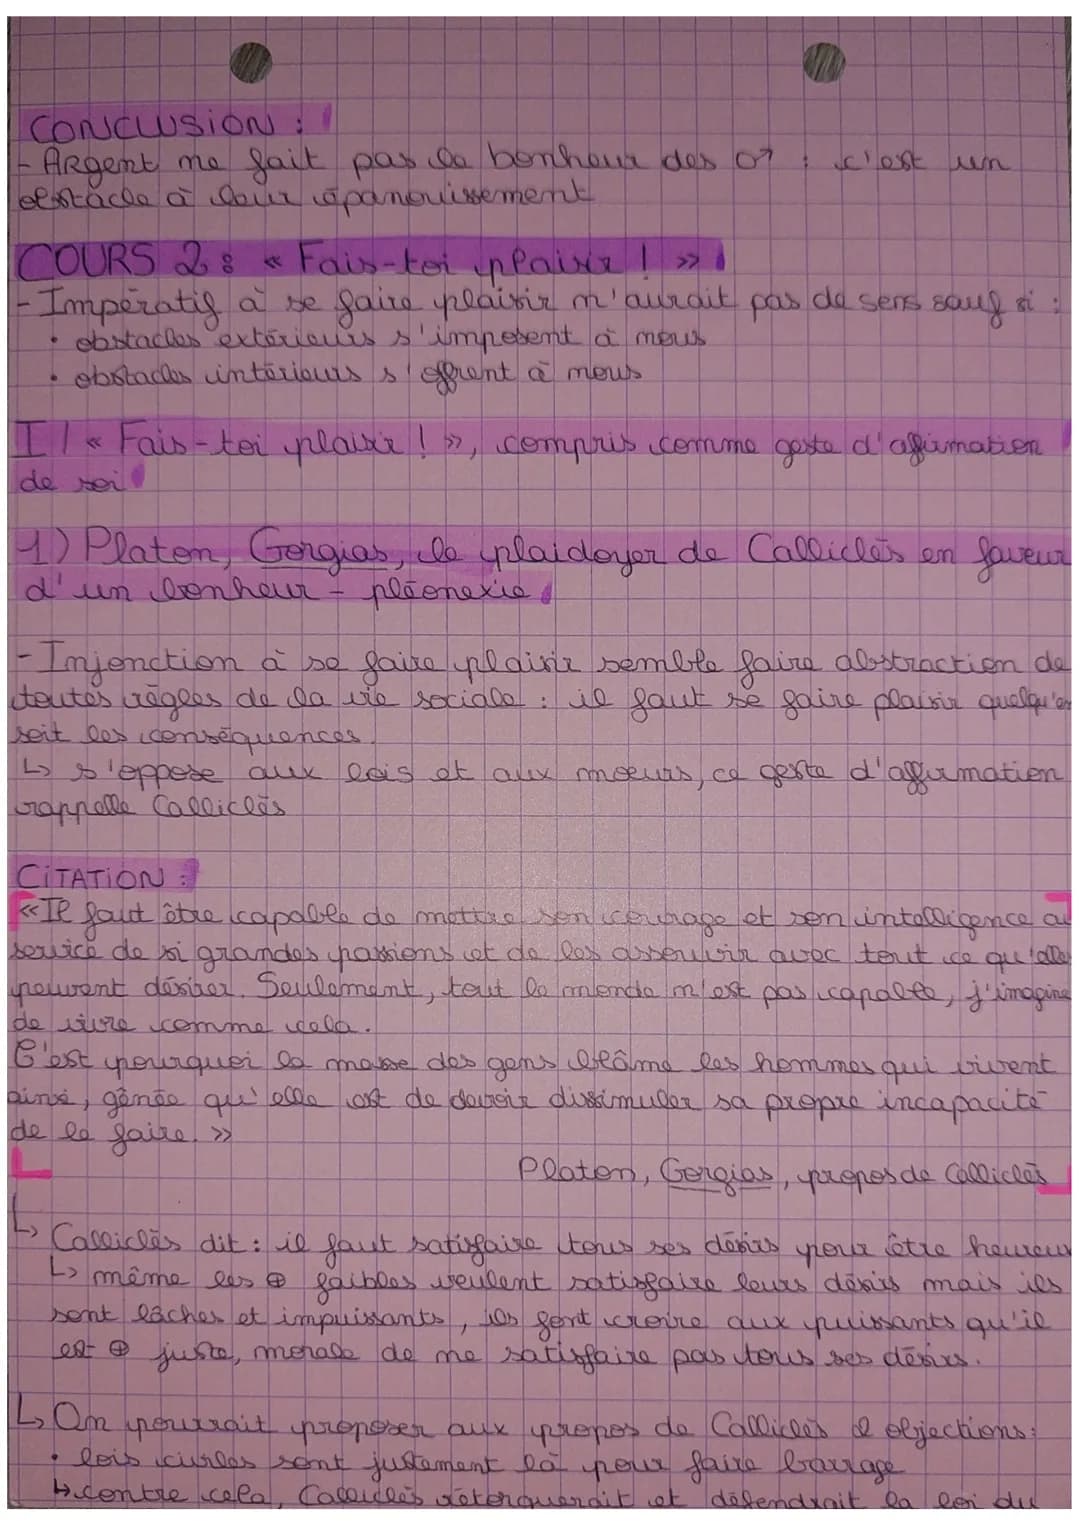 CONCLUSION :
- Argent ne fait pas le bonheur des ♂ : c'est un
obstacle à leur épanouissement
COURS 2 : « Fais-toi plaisir ! »
- Impératif à se faire plaisir n'aurait pas de sens sauf si :
• obstacles extérieurs s'imposent à nous
• obstacles intérieurs s'offrent à nous
I / « Fais-toi plaisir ! », compris comme geste d'affirmation
de soi
1) Platon, Gorgias, le plaidoyer de Calliclès en faveur
d'un bonheur - pléonexie
- Injonction à se faire plaisir semble faire abstraction de
toutes règles de la vie sociale : il faut se faire plaisir quelqu'en
soit les conséquences.
↳ s'oppose aux lois et aux moeurs, ce geste d'affirmation
rappelle Calliclès
CITATION :
« Il faut être capable de mettre son courage et son intelligence au
service de si grandes passions et de les assouvir avec tout ce qu'elles
peuvent désirer. Seulement, tout le monde n'est pas capable, j'imagine
de vivre comme cela.
C'est pourquoi la masse des gens blâme les hommes qui vivent
ainsi, gênée qu'elle est de devoir dissimuler sa propre incapacité
de le faire. »
Platon, Gorgias, propos de Calliclès
↳ Calliclès dit : il faut satisfaire tous ses désirs pour être heureux
↳ même les ⊕ faibles veulent satisfaire leurs désirs mais ils
sont lâches et impuissants, ils font croire aux puissants qu'il
est ⊕ juste, morale de ne satisfaire pas tous ses désirs.
↳ On pourrait proposer aux propos de Calliclès 2 objections :
• lois civiles sont justement là pour faire barrage
↳ contre cela, Calliclès rétorquerait et défendrait la loi du